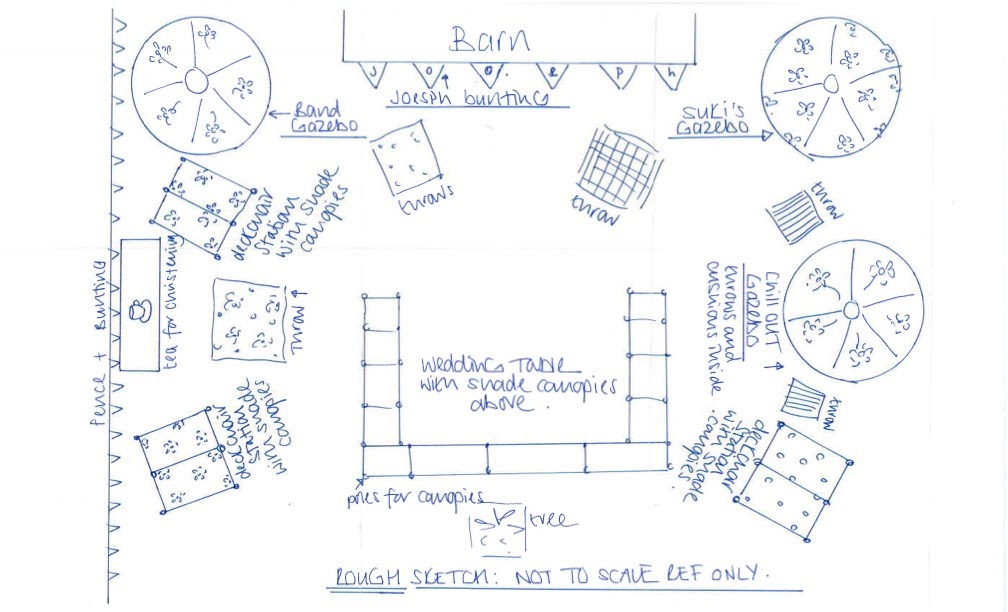 Barn
J O O. E P h
JOESPH bunting
BAND
GAZEBO
SUKI'S
GAZEBO
throws
throw
throw
deckchair
station
with shade
canopies
tea for christening
throw
Fence + Bunting
CHILL OUT
GAZEBO
throws and
cushions inside.
throw
WEDDING TABLE
with shade canopies
above.
deckchair
station
with shade
canopies
deckchair
station
with shade
canopies
poles for canopies
tree
ROUGH SKETCH: NOT TO SCALE REF ONLY.